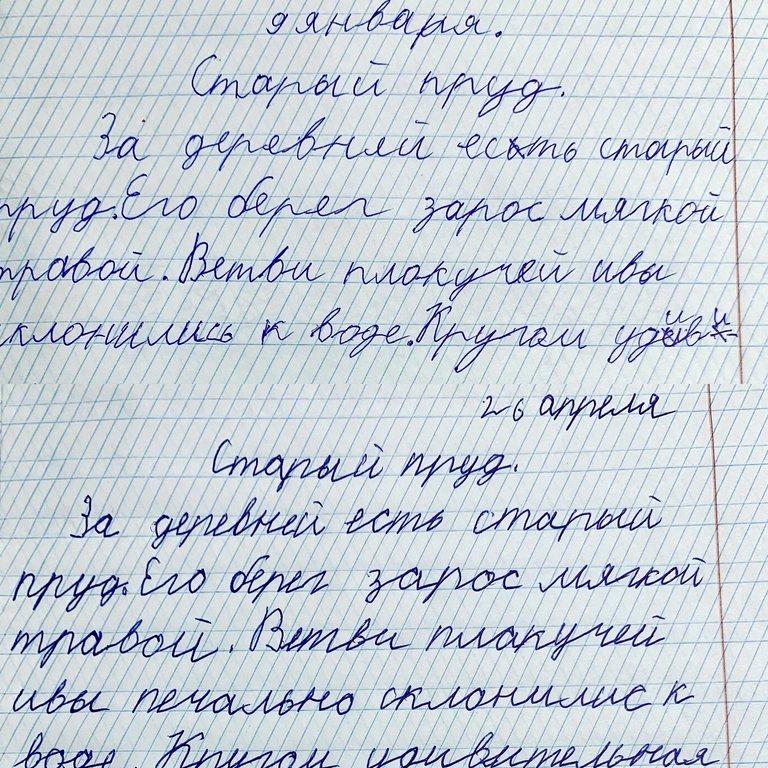 9 января.
Старый пруд.
За деревней есть старый
пруд. Его берег зарос мягкой
травой. Ветви плакучей ивы
склонились к воде. Кругом удив
26 апреля
Старый пруд.
За деревней есть старый
пруд. Его берег зарос мягкой
травой. Ветви плакучей
ивы печально склонилис к
воде. Кругом удивительная